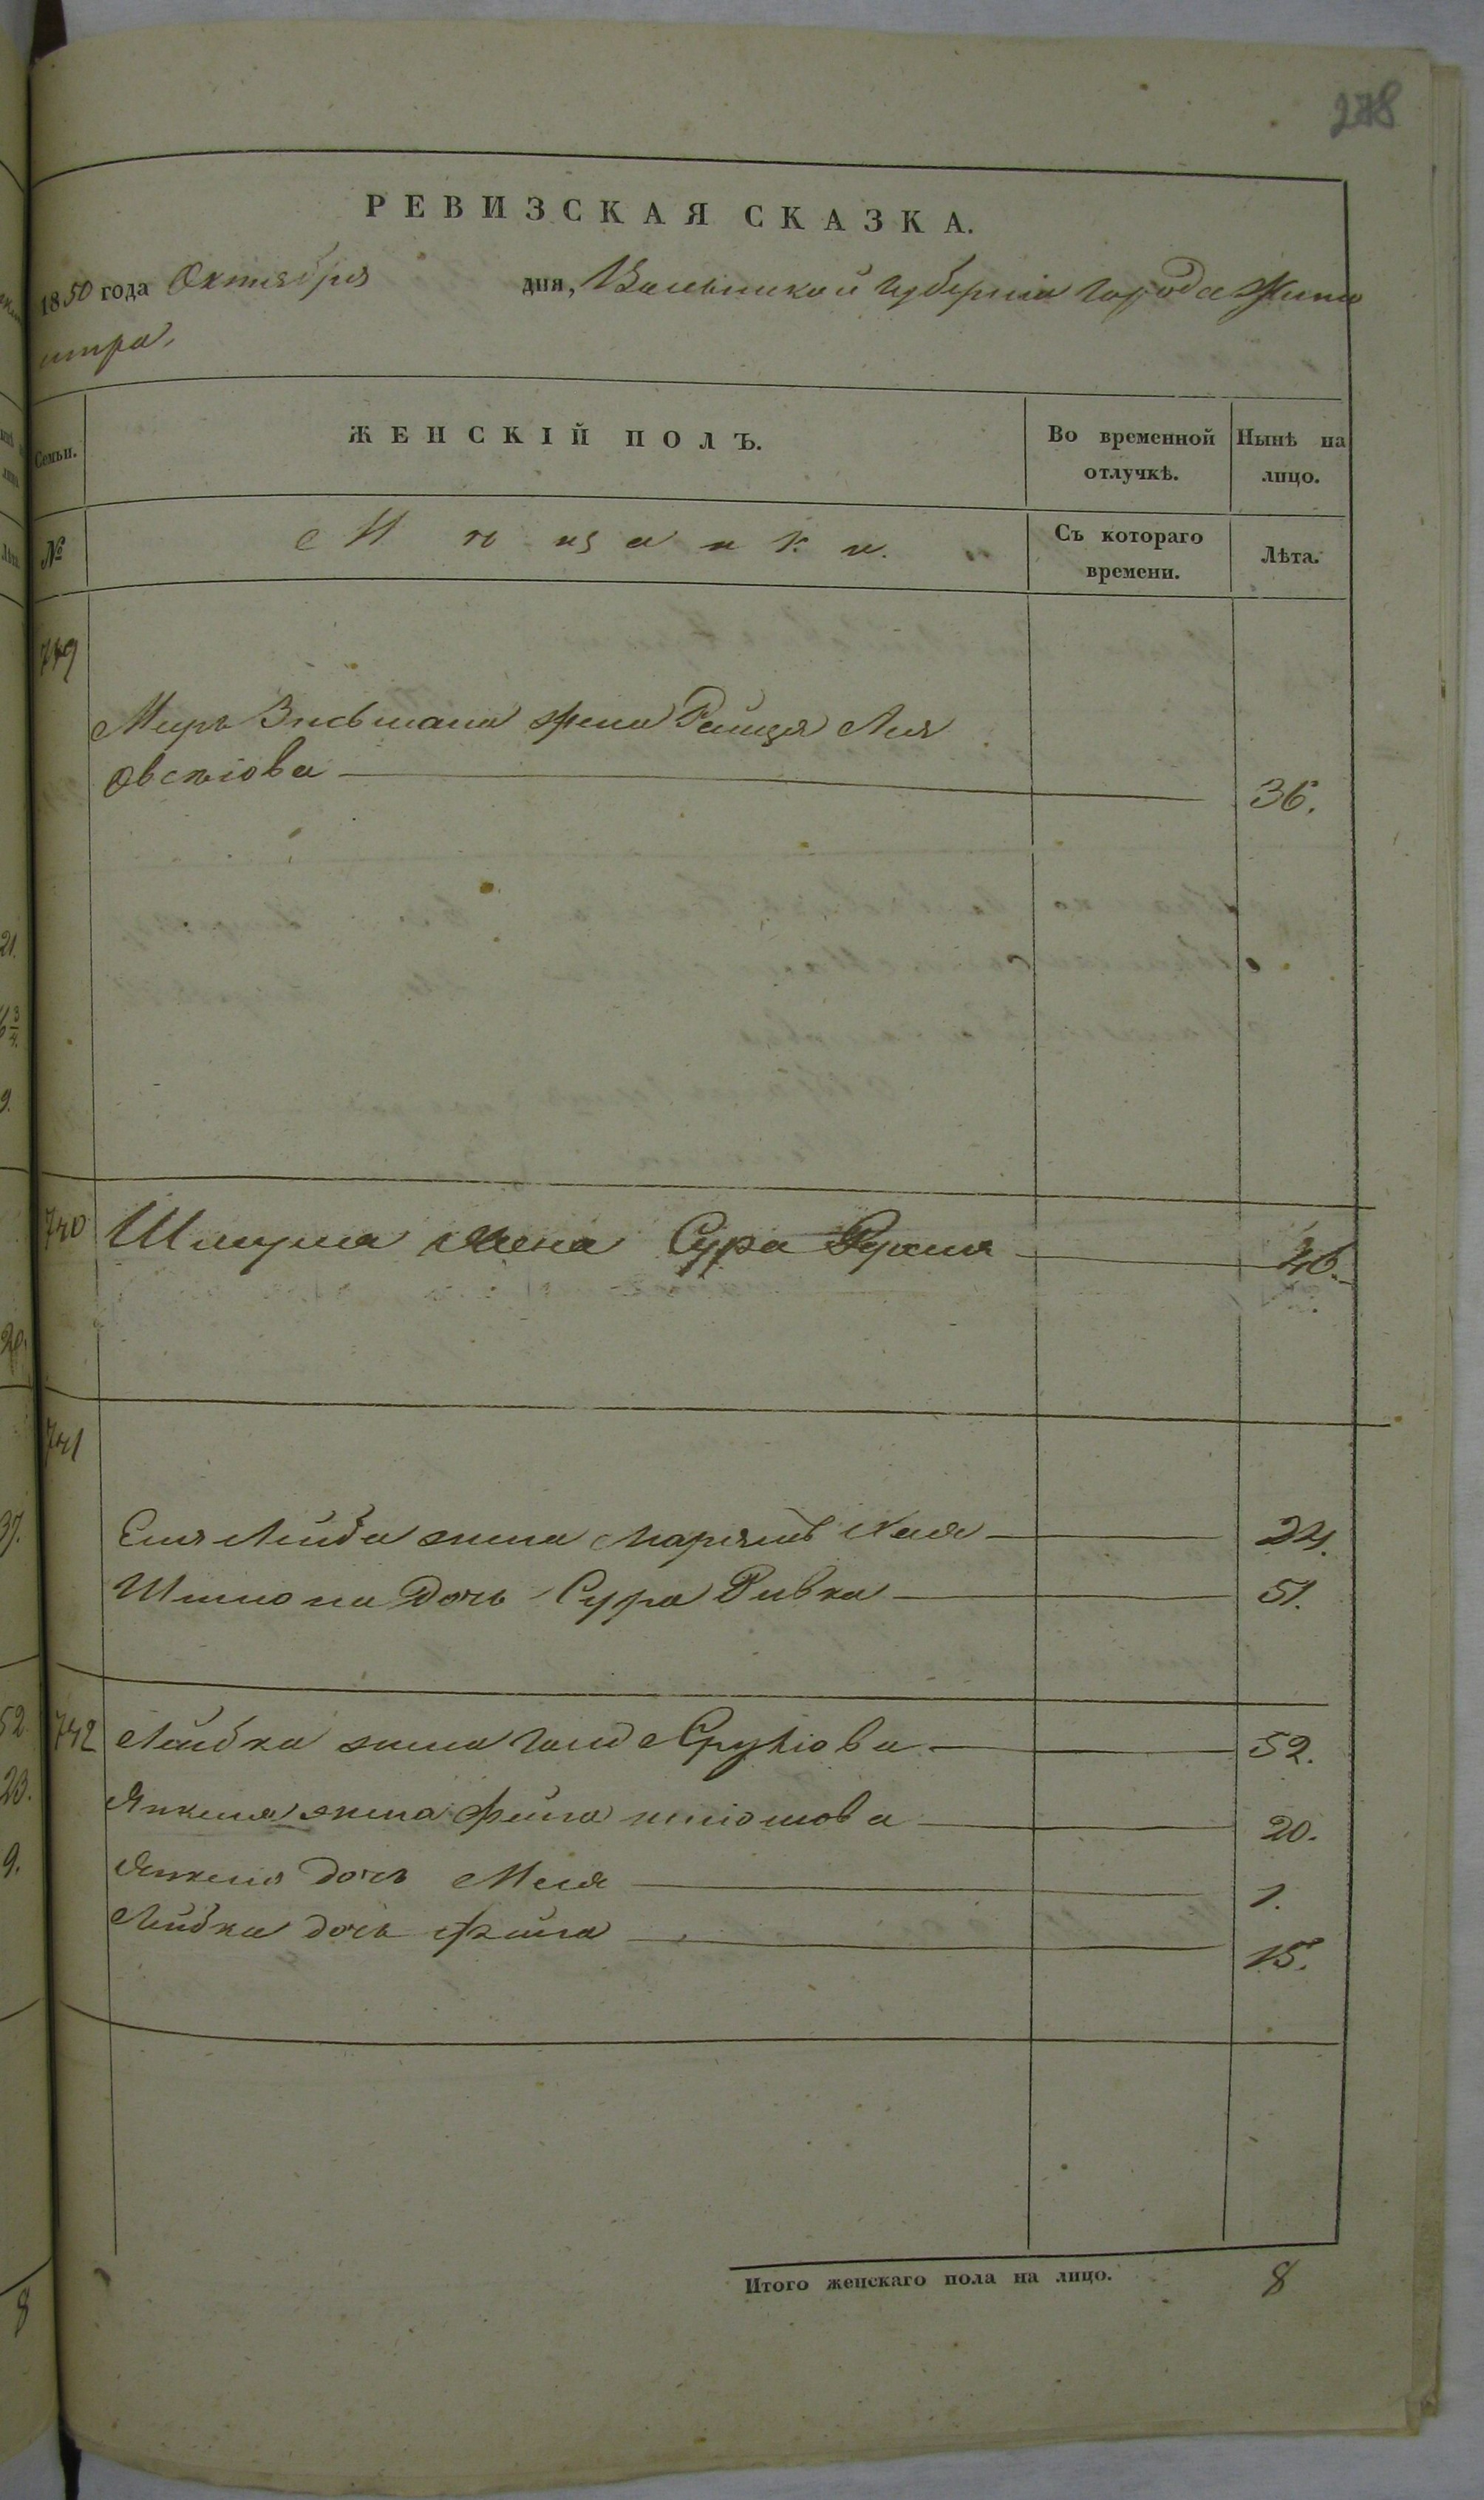 278
РЕВИЗСКАЯ СКАЗКА.
1850 года Октября дня, Волынской губерніи города Жито
мира,
Семьи. ЖЕНСКІЙ ПОЛЪ. Во временной отлучкѣ. Нынѣ на лицо.
№ Мѣщанки. Съ котораго времени. Лѣта.
739
Меръ Зисьмана жена Рейця Лея
Овсѣіова 36.
740 Шмуля жена Сура 46.
741
Еля Лейба жена Марьямъ Хая 24.
Шимона дочь Сура Ривка 51.
742 Лейбка жена Сруліова 52.
Янкеля жена Фейга 20.
Янкеля дочь 1.
Лейбка дочь Фейга 15.
Итого женскаго пола на лицо. 8
21.
9.
20.
37.
52.
23.
9.
8